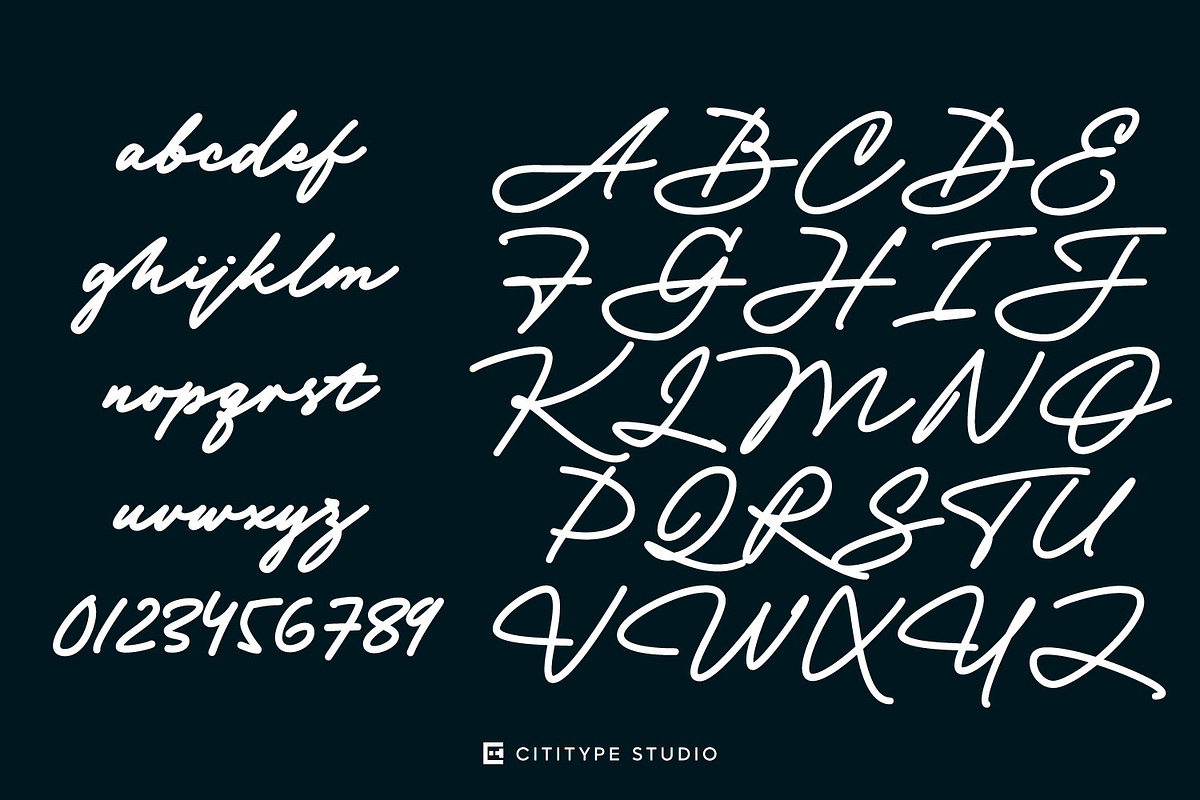 abcdef
ghijklm
nopqrst
uvwxyz
0123456789
ABCDE
FGHIJ
KLMNO
PQRSTU
VWXYZ
CITITYPE STUDIO